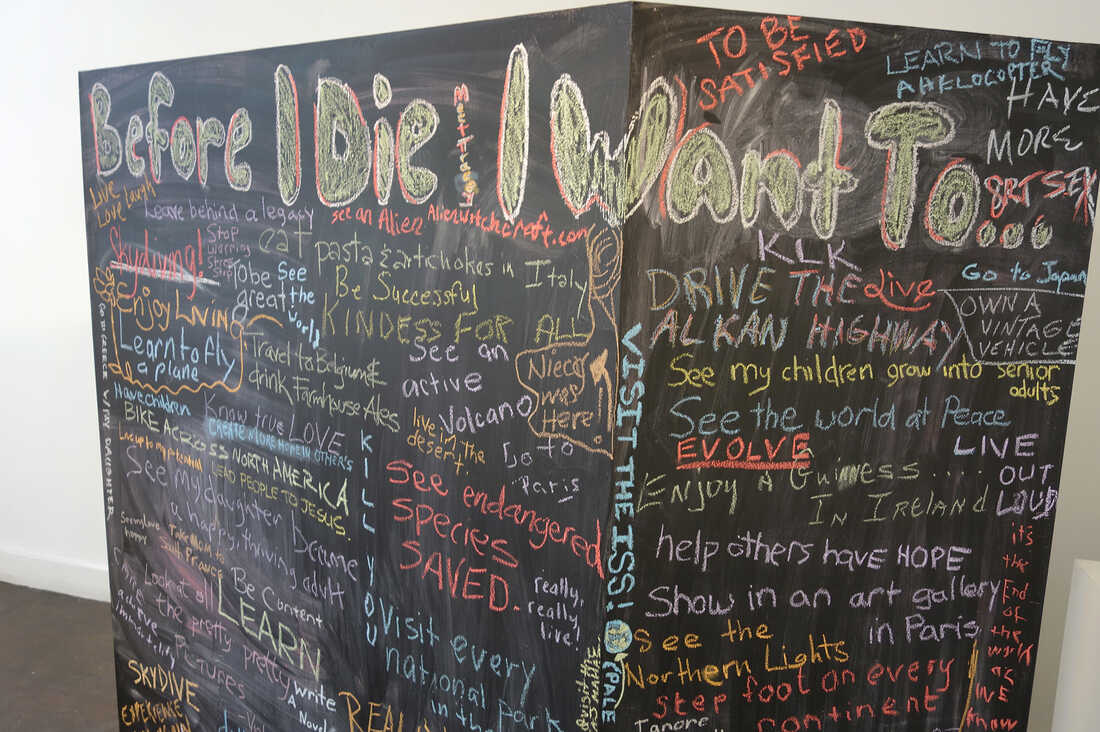 Before I Die I Want To...
TO BE
SATISFIED
LEARN TO FLY
A HELOCOPTER
HAVE
MORE
SEX
Live
Love Laugh
Leave behind a legacy
see an Alien
Alienwitchcraft.com
Skydiving!
Stop
Worring
Stress
Stop
eat
pasta & artchokes in Italy
To be
great
See
the
world
Be Successful
KINDESS FOR ALL
Enjoy Livin
Learn to fly
a plane
GO TO GREECE WITH MY DAUGHTER
Travel to Belgium &
drink Farmhouse Ales
See an
active
Volcano
Niece
was
Here!
Have children
BIKE ACROSS NORTH AMERICA
Know true LOVE
CREATE MORE HOPE IN OTHER'S
LEAD PEOPLE TO JESUS.
Live up to my potential
live in the
desert.
Go to
Paris
KILL YOU
See my daughter become
a happy, thriving adult
See endangered
SPECIES
SAVED.
really,
really,
live!
Take Mom to
South France
Look at all
the pretty pretty
PICTURES
Be Content
LEARN
write
A Novel
Visit every
national
in the Park
SKYDIVE
EXPERIENCE
REAL
VISIT THE ISS!
PALE
KLK
DRIVE THE
ALKAN HIGHWAY
Live
Go to Japan
OWN A
VINTAGE
VEHICLE
See my children grow into senior
adults
See the world at Peace
EVOLVE
LIVE
OUT
LOUD
ENJOY A GUINESS....
IN IRELAND
help others have HOPE
Show in an art gallery
in Paris
it's
the
End
of
the
world
as
WE
know
See the
Northern Lights
step foot on every
continent
Ignore